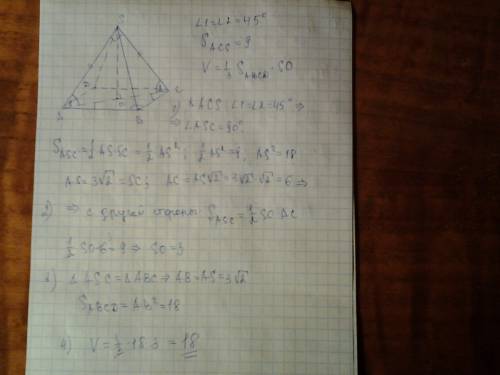 ∠1=∠2=45°
S_ACS=9
V=1/3 S_ABCD·SO
S
A
B
C
D
O
1) △ACS: ∠1=∠2=45° ⇒
⇒ ∠ASC=90°
S_ASC=1/2 AS·SC=1/2 AS²; 1/2 AS²=9, AS²=18
AS=3√2=SC; AC=AS√2=3√2·√2=6 ⇒
2) ⇒ с другой стороны S_ASC=1/2 SO·AC
1/2 SO·6=9 ⇒ SO=3
3) △ASC=△ABC ⇒ AB=AS=3√2
S_ABCD=AB²=18
4) V=1/3·18·3=18